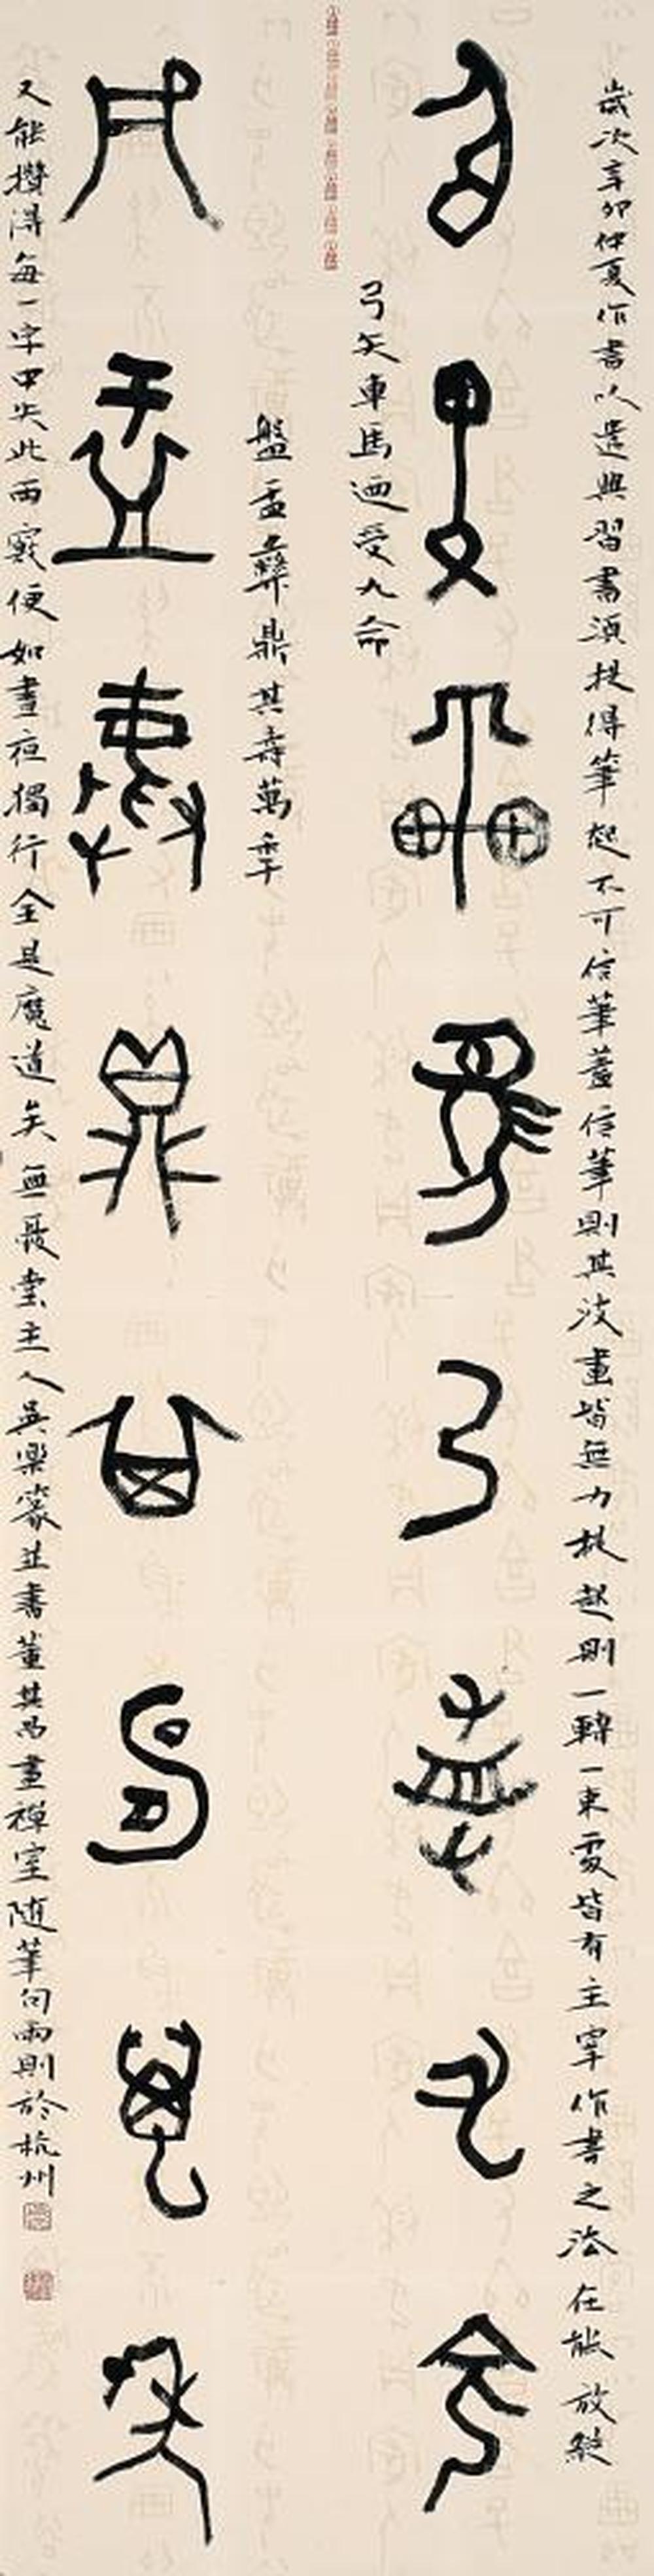 歲次辛卯仲夏作書以遣興習書須提得筆起不可信筆蓋信筆則其波畫皆無力提起則一轉一束處皆有主宰作書之法在能放縱
弓矢車馬迺受九命
弓矢車馬迺受九命
盤盂彝鼎其壽萬秊
盤盂彝鼎其壽萬秊
又能攢得每一字中失此兩竅便如晝夜獨行全是魔道矣無堂主人吳樂篆並書董其昌畫禪室隨筆句兩則於杭州